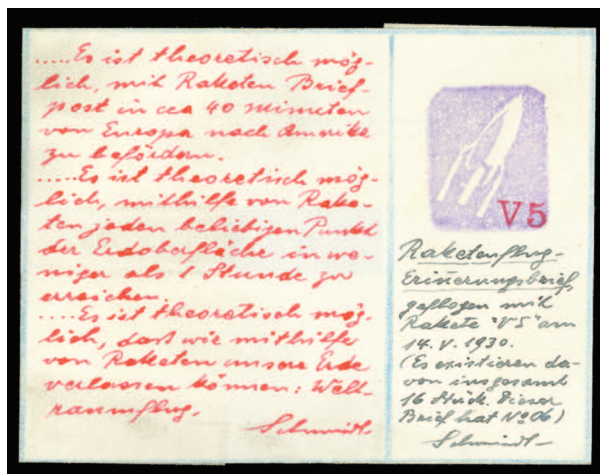 .....Es ist theoretisch mög-
lich, mit Raketen Brief-
post in cca 40 Minuten
von Europa nach Amerika
zu befördern.
.....Es ist theoretisch mög-
lich, mithilfe von Rake-
ten jeden beliebigen Punkt
der Erdoberfläche in we-
niger als 1 Stunde zu
erreichen.
.....Es ist theoretisch mög-
lich, dass wir mithilfe
von Raketen unsere Erde
verlassen können: Welt-
raumflug.
Schmiedl
V5
Raketenflug-
Erinnerungsbrief,
geflogen mit
Rakete "V5" am
14. V. 1930.
(Es existieren da-
von insgesamt
16 Stück. Dieser
Brief hat № 06)
Schmiedl